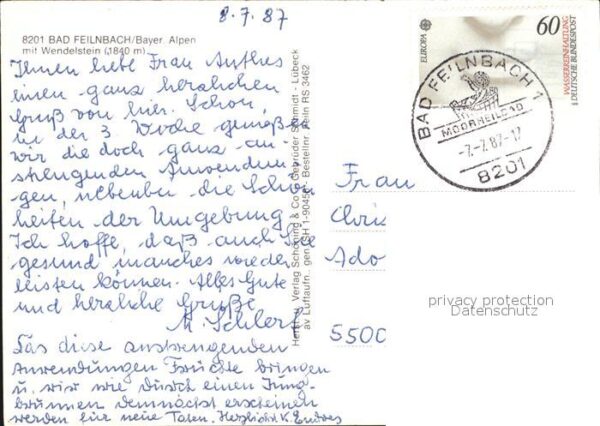 8.7.87
8201 BAD FEILNBACH/Bayer. Alpen
mit Wendelstein (1840 m)
Ihnen liebe Frau Anthes
einen ganz herzlichen
Gruß von hier. Schon
die 3. Woche genieß
wir die doch ganz an-
strengenden Anwendun
gen, nebenbei die Schön
heiten der Umgebung
Ich hoffe, daß auch Sie
gesund manches wieder
leisten können. Alles Gute
und herzliche Grüße
M. Schlert
Das diese anstrengenden
Anwendungen Früchte bringen
u. wir wie durch einen Jung-
brunnen demnächst erscheinen
werden für neue Taten. Herzlichst K. Endres
Verlag Schöning & Co + Gebrüder Schmidt - Lübeck
av Luftaufn. gen. SH 1-9045 Bestellnr. Feiln RS 3462
EUROPA
60
WASSERREINHALTUNG
DEUTSCHE BUNDESPOST
BAD FEILNBACH 1
MOORHEILBAD
-7.-7.87-17
8201
Frau
Chri
Ado
5500
privacy protection
Datenschutz